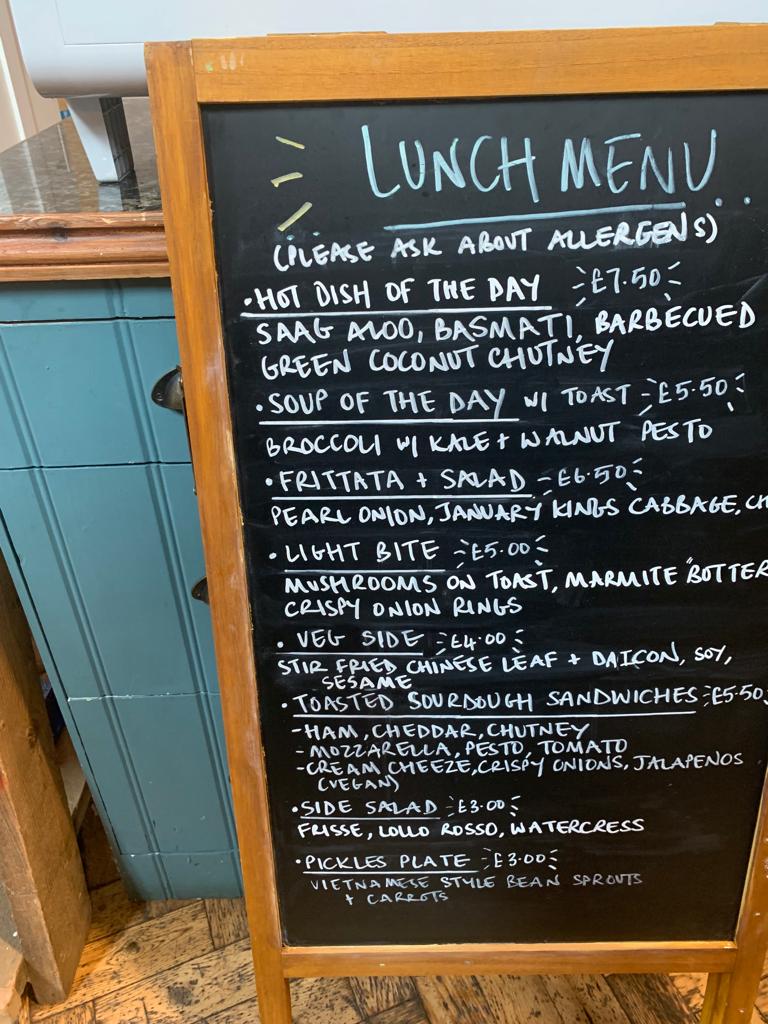 LUNCH MENU..
(PLEASE ASK ABOUT ALLERGENS)
• HOT DISH OF THE DAY £7.50
SAAG ALOO, BASMATI, BARBECUED
GREEN COCONUT CHUTNEY
• SOUP OF THE DAY W/ TOAST £5.50
BROCCOLI W/ KALE + WALNUT PESTO
• FRITTATA + SALAD £6.50
PEARL ONION, JANUARY KINGS CABBAGE,
• LIGHT BITE £5.00
MUSHROOMS ON TOAST, MARMITE "BOTTER
CRISPY ONION RINGS
• VEG SIDE £4.00
STIR FRIED CHINESE LEAF + DAICON, SOY,
SESAME
• TOASTED SOURDOUGH SANDWICHES £5.50
- HAM, CHEDDAR, CHUTNEY
- MOZZARELLA, PESTO, TOMATO
- CREAM CHEEZE, CRISPY ONIONS, JALAPENOS
(VEGAN)
• SIDE SALAD £3.00
FRISSE, LOLLO ROSSO, WATERCRESS
• PICKLES PLATE £3.00
VIETNAMESE STYLE BEAN SPROUTS
+ CARROTS